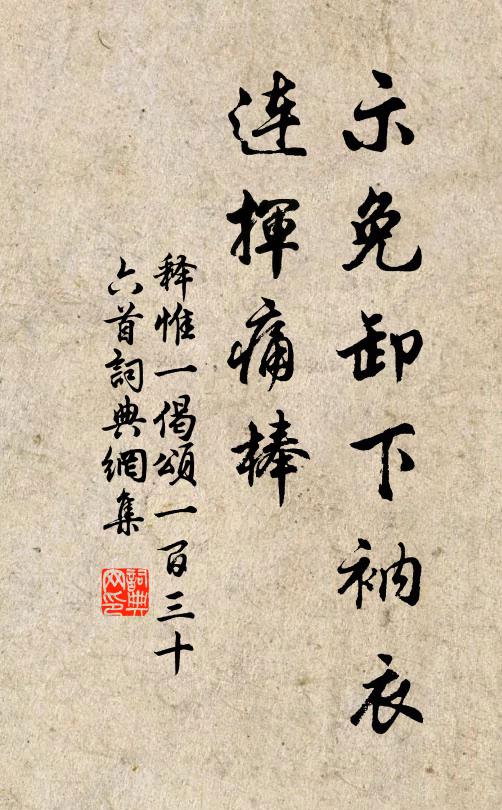 示免卸下衲衣
連揮痛棒
释惟一偈頌一百三十
六首詞典網集
詞典
网印